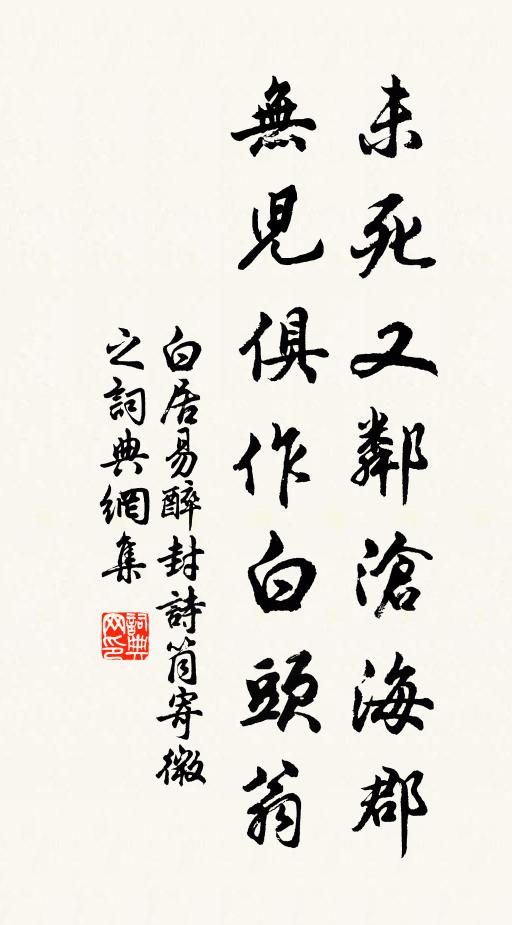 未死又鄰滄海郡
無児俱作白頭翁
白居易醉封詩筒寄微
之詞典網集
詞典网印